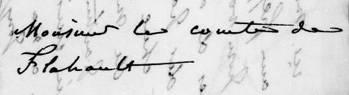 Monsieur le comte de
Flahault